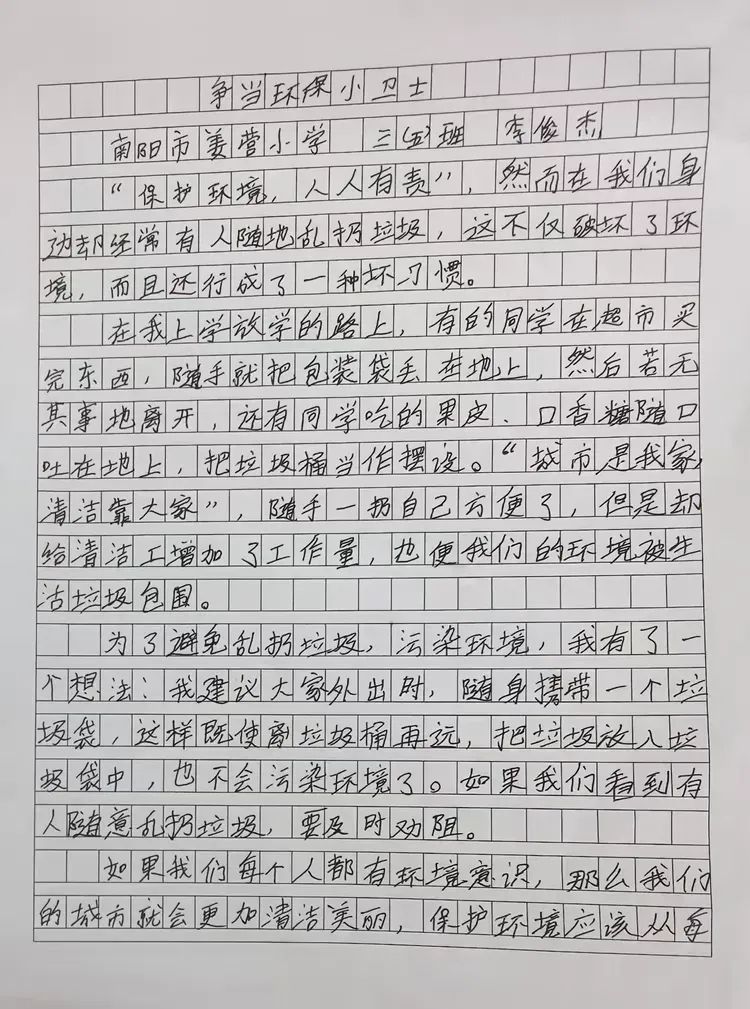 争当环保小卫士
南阳市姜营小学 三(五)班 李俊杰
“保护环境，人人有责”，然而在我们身
边却经常有人随地乱扔垃圾，这不仅破坏了环
境，而且还行成了一种坏习惯。
在我上学放学的路上，有的同学在超市买
完东西，随手就把包装袋丢在地上，然后若无
其事地离开，还有同学吃的果皮、口香糖随口
吐在地上，把垃圾桶当作摆设。“城市是我家，
清洁靠大家”，随手一扔自己方便了，但是却
给清洁工增加了工作量，也使我们的环境被生
活垃圾包围。
为了避免乱扔垃圾，污染环境，我有了一
个想法：我建议大家外出时，随身携带一个垃
圾袋，这样既使离垃圾桶再远，把垃圾放入垃
圾袋中，也不会污染环境了。如果我们看到有
人随意乱扔垃圾，要及时劝阻。
如果我们每个人都有环境意识，那么我们
的城市就会更加清洁美丽，保护环境应该从每